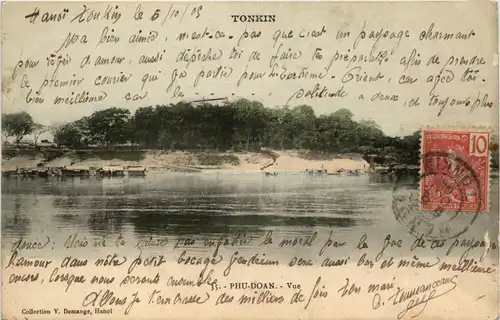 Hanoï Tonkin le 5/10/05
TONKIN
Ma bien aimée, n'est-ce-pas que c'est un paysage charmant
pour rêver d'amour, aussi dépêche toi de faire tes préparatifs afin de prendre
le premier courrier qui partira pour l'extrême-Orient, car avec toi
bien meilleure car la solitude à deux, et toujours plus
10
douce. Mais ne te laisse pas le moral par la de ce paysage
l'amour dans notre petit bocage sera aussi bon et même meilleure
encore, lorsque nous serons ensemble.
35. - PHU-DOAN. - Vue
Allons je t'embrasse des milliers de fois Ton mari
Collection V. Demange, Hanoï